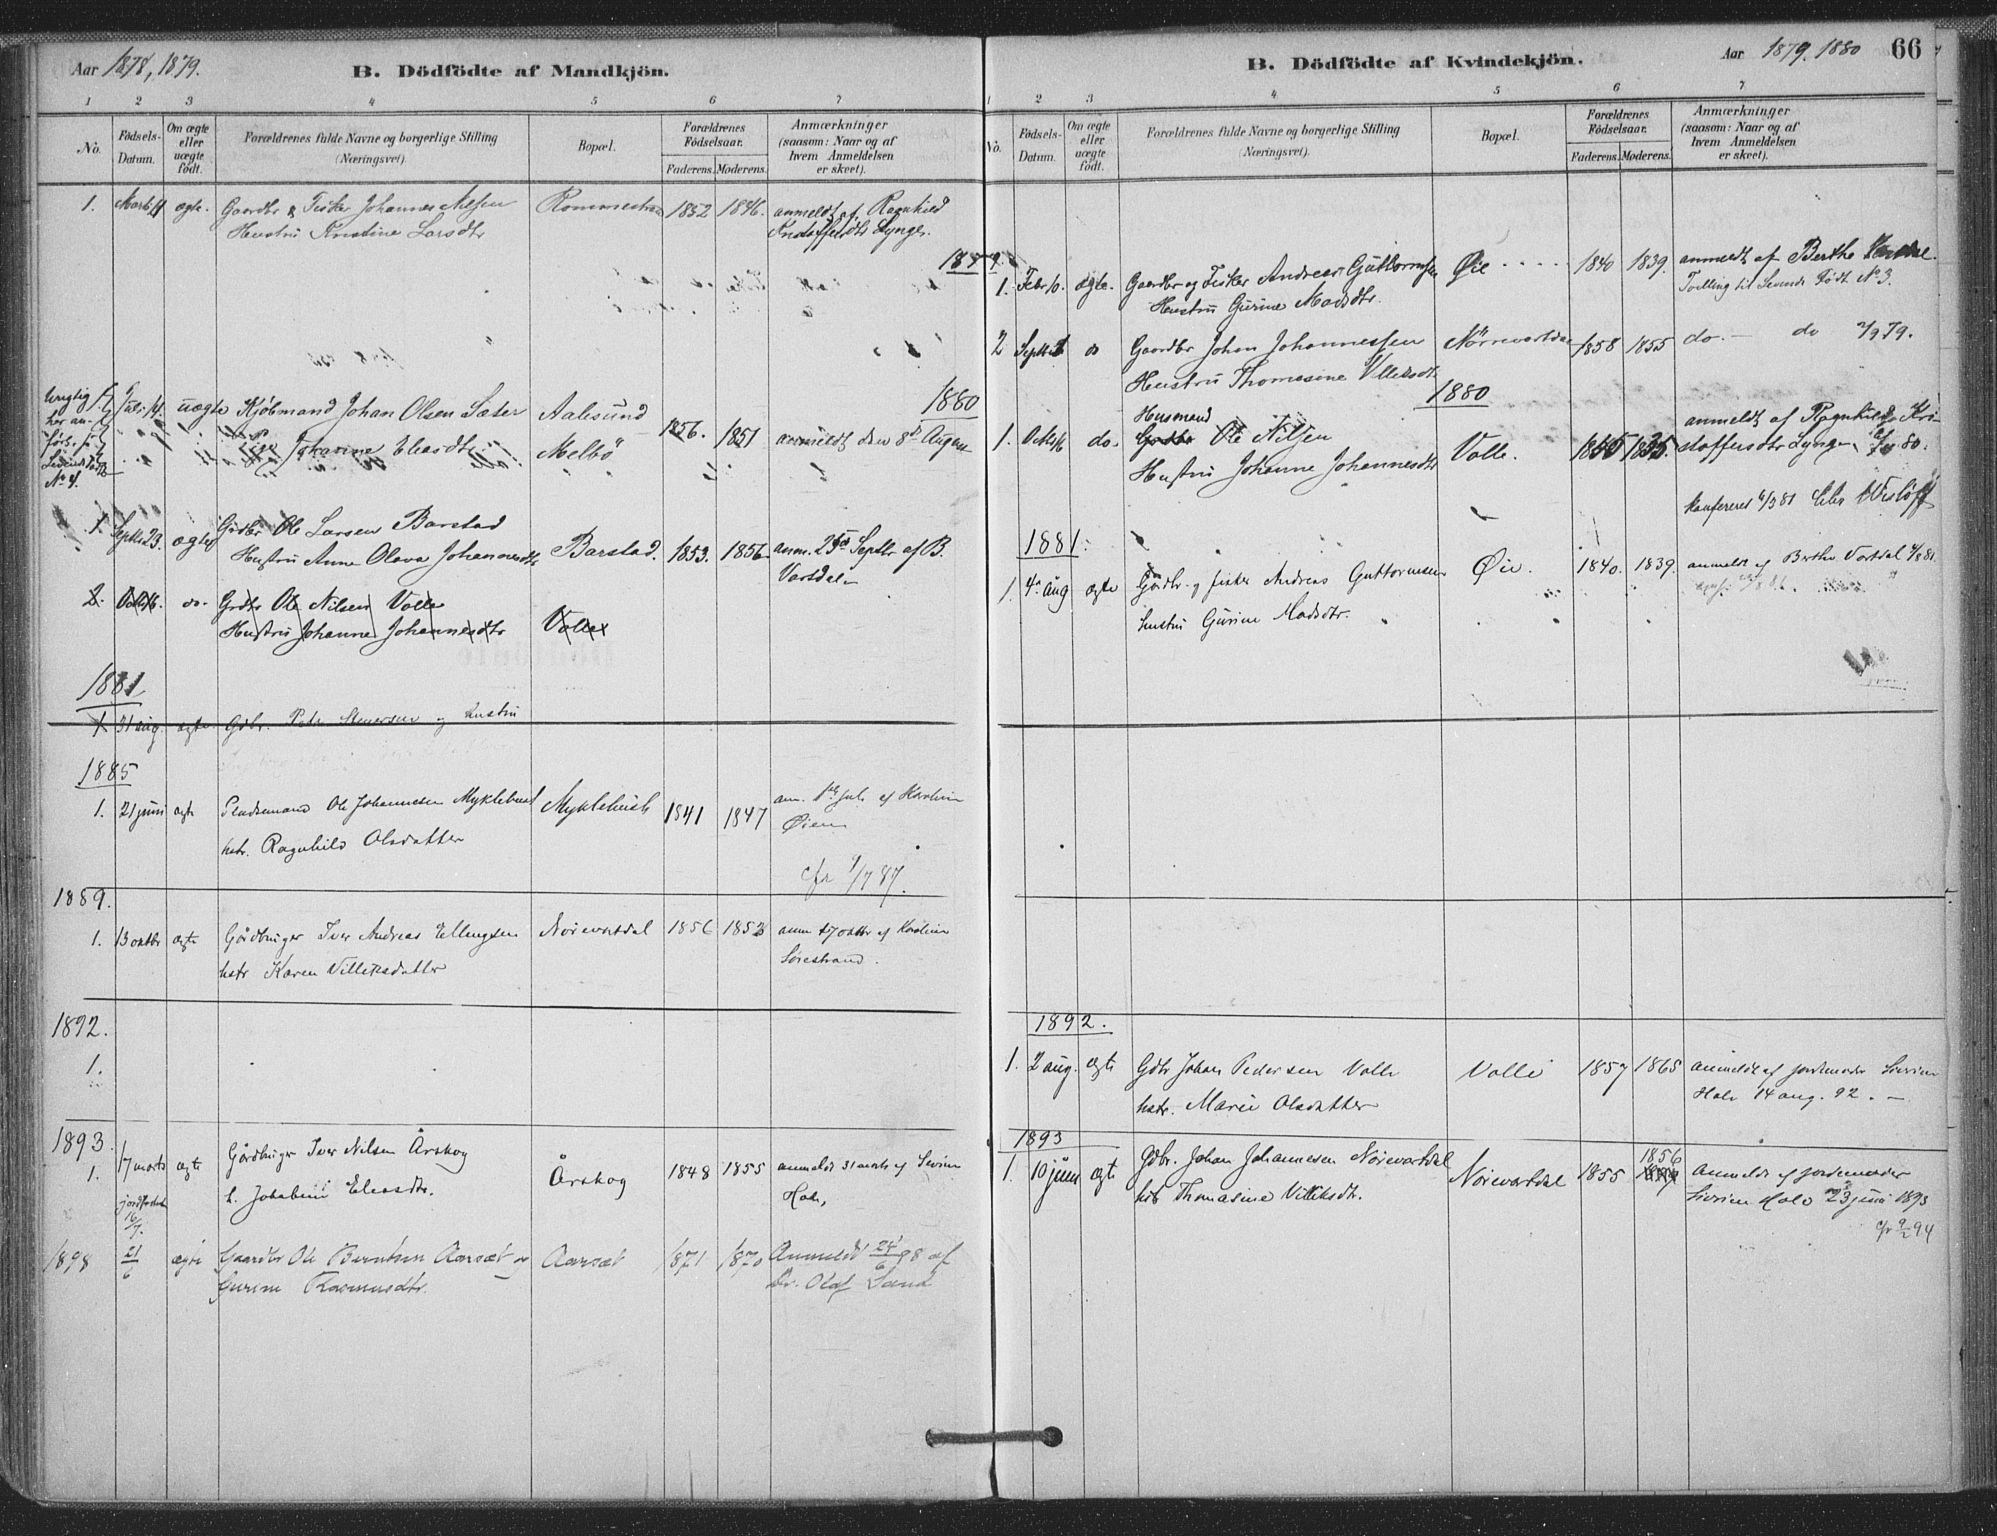 Aar 1878, 1879.
B. Dödfödte af Mandkjön.
1 2 3 4 5 6 7
No.
Födsels-
Datum.
Om ægte
eller
uægte
födt.
Forældrenes fulde Navne og borgerlige Stilling
(Næringsvei)
Bopæl.
Forældrenes
Födselsaar.
Faderens. Moderens.
Anmærkninger
(saasom: Naar og af
hvem Anmeldelsen
er skeet).
1. ægte. Gaardbr & Fisker Johannes 1852 1846. anmeldt af Ragnhild
Hustru Kristine Larsdtr
1879
1880
Urigtig
her an-
ført, se
No 4.
Juli 14. uægte Kjøbmand Johan Olsen Sæter Aalesund 1856. 1851 anmeldt den 8de August
Pige Johanne Eliasdtr. Melbö
1. Septbr 23. ægte Grdbr Ole Larsen Barstad
Hustru Anne Olava Johannesdtr Barstad. 1853. 1856. anm. 25de Septbr af B.
Vartdal
2. do. Grdbr Ole Nilsen Volle
Hustru Johanne Johannesdtr Volle
1881
1 31 aug. ægte Gdbr. Peter Steversen og hustru
1885
1. 21 juni ægte Ole Johannesen Myklebust Myklebust 1841 1847 anm. 1ste juli af Karolin
Øien
hstr. Ragnhild Olsdatter
cfr 9/7 87.
1889.
1. 13 oktbr ægte Gårdbruger Iver Andreas Ellingsen Norevartdal 1856 1853 anm 17 oktbr af Karolin
hstr Karen Villiksdatter Sørestrand.
1892.
1.
1893.
1. 17 marts ægte Gårdbruger Iver Nilsen Årskog Årskog 1848 1855 anmeldt 31 marts af Sivrine
h. Jakobine Eliasdtr. Hole,
jordfæstet
16/7.
1898 21/6 ægte Gaardbr Ole Berntsen Aarsæt og Aarsæt 1871 1870 Anmeldt 24/6 98 af
Gurine Rasmusdtr. Dr. Olaf Sand
B. Dödfödte af Kvindekjön.
Aar 1879, 1880
66
1 2 3 4 5 6 7
No.
Födsels-
Datum.
Om ægte
eller
uægte
födt.
Forældrenes fulde Navne og borgerlige Stilling
(Næringsvei).
Bopæl.
Forældrenes
Födselsaar.
Faderens. Moderens.
Anmærkninger
(saasom: Naar og af
hvem Anmeldelsen
er skeet).
1. Febr 10. ægte. Gaardbr og Fisker Andreas Guttormsen Øie 1840 1839. anmeldt af Berthe Vartdal.
Hustru Gurine Madsdtr. Tvilling til Levende Født No 3.
2 Septbr do Gaardbr Johan Johannessen Nörevartdal 1858 1855 do. do 2/9 79.
Hustru Thomasine Villiksdtr
1880
Husmand
1. Oktbr 16 do. Grdbr Ole Nilsen Volle. 1835. anmeldt af Ragnhild Kri-
stoffersdtr Lynge
Hustru Johanne Johannesdtr
Konfereret 6/3 81
1881.
1. 4. aug ægte Gårdbr. og fisker Andreas Guttormsen Øie. 1840. 1839. anmeldt af Berthe Vartdal
hustru Gurine Madsdtr.
1892.
1. 2 aug. ægte Gdbr Johan Pedersen Volle Volle 1857 1865 anmeldt af jordemoder Sivrine
hstr. Marie Olsdatter Hole 14 aug. 92.
1893
1. 10 juni ægte Gdbr. Johan Johannesen Norevartdal Norevartdal 1855 1856 anmeldt af jordemoder
hst Thomasine Villiksdtr. Sivrine Hole 23 juni 1893
cfr 9/2 94